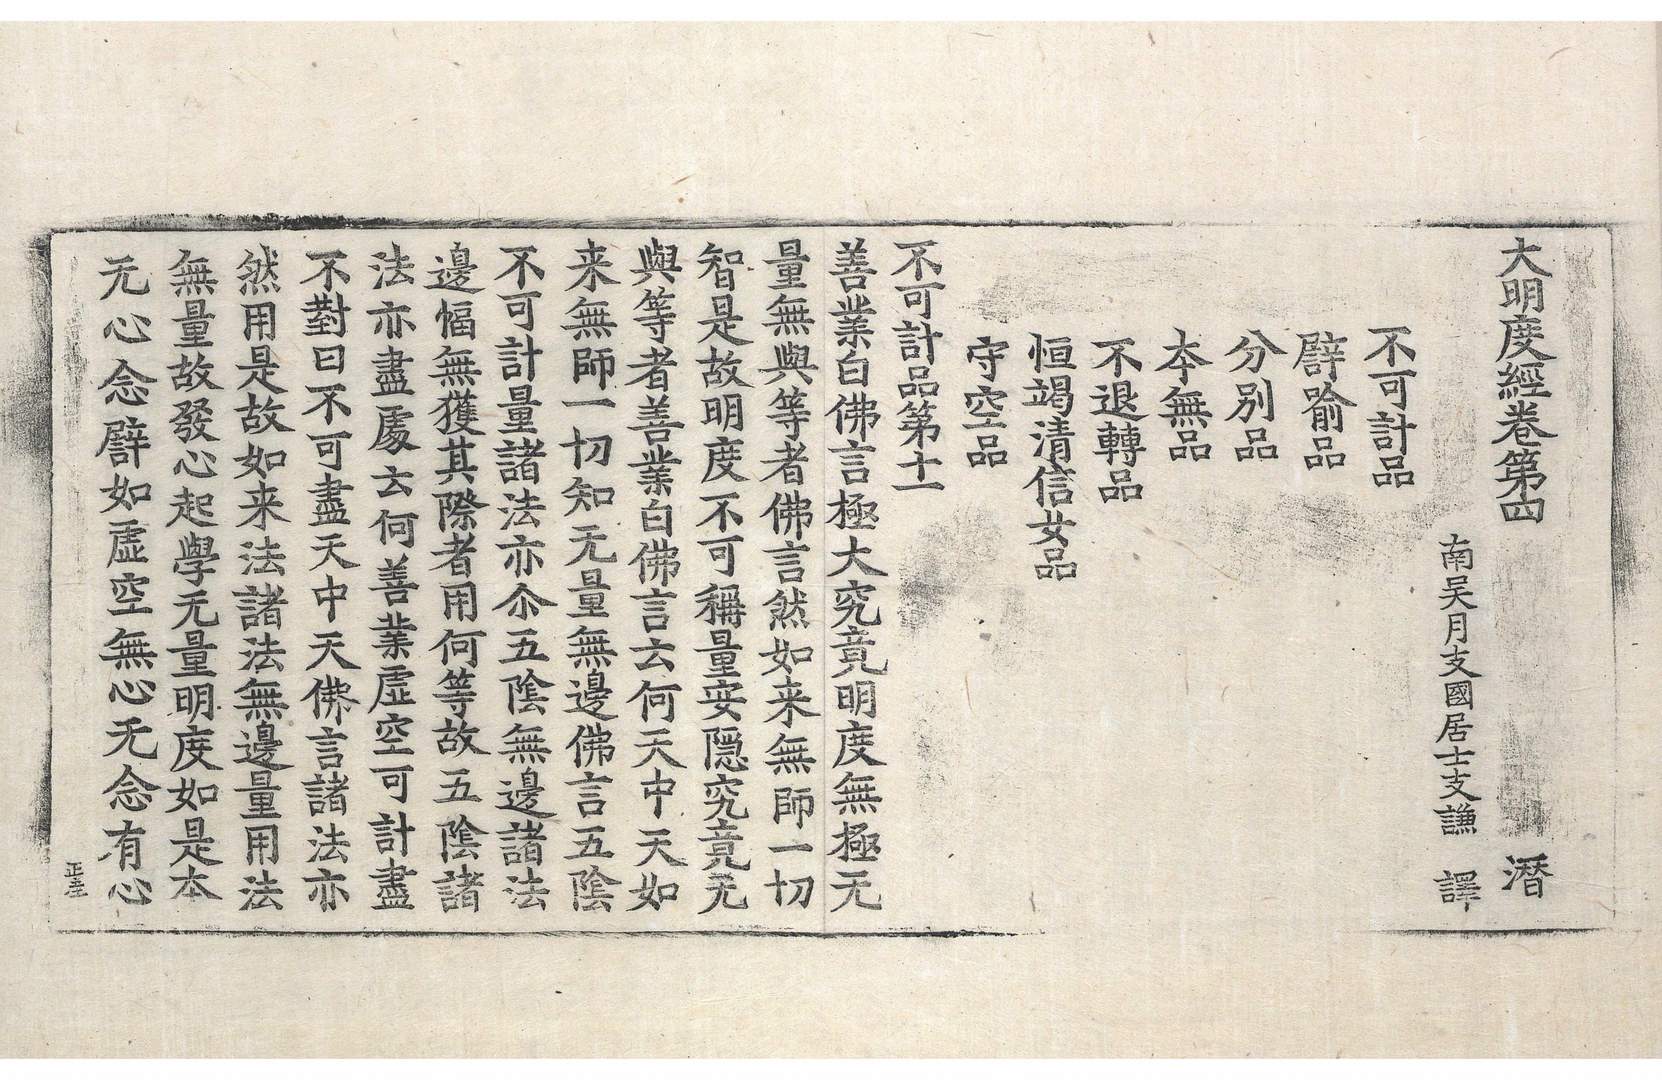 大明度經卷第四 潛
南吳月支國居士支謙 譯
不可計品
譬喻品
分別品
本無品
不退轉品
恒竭清信女品
守空品
不可計品第十一
善業白佛言極大究竟明度無極无
量無與等者佛言然如来無師一切
智是故明度不可稱量安隱究竟无
與等者善業白佛言云何天中天如
来無師一切知无量無邊佛言五陰
不可計量諸法亦尒五陰無邊諸法
邊幅無獲其際者用何等故五陰諸
法亦盡處云何善業虛空可計盡
不對曰不可盡天中天佛言諸法亦
然用是故如来法諸法無邊量用法
無量故發心起學无量明度如是本
无心念譬如虛空無心无念有心